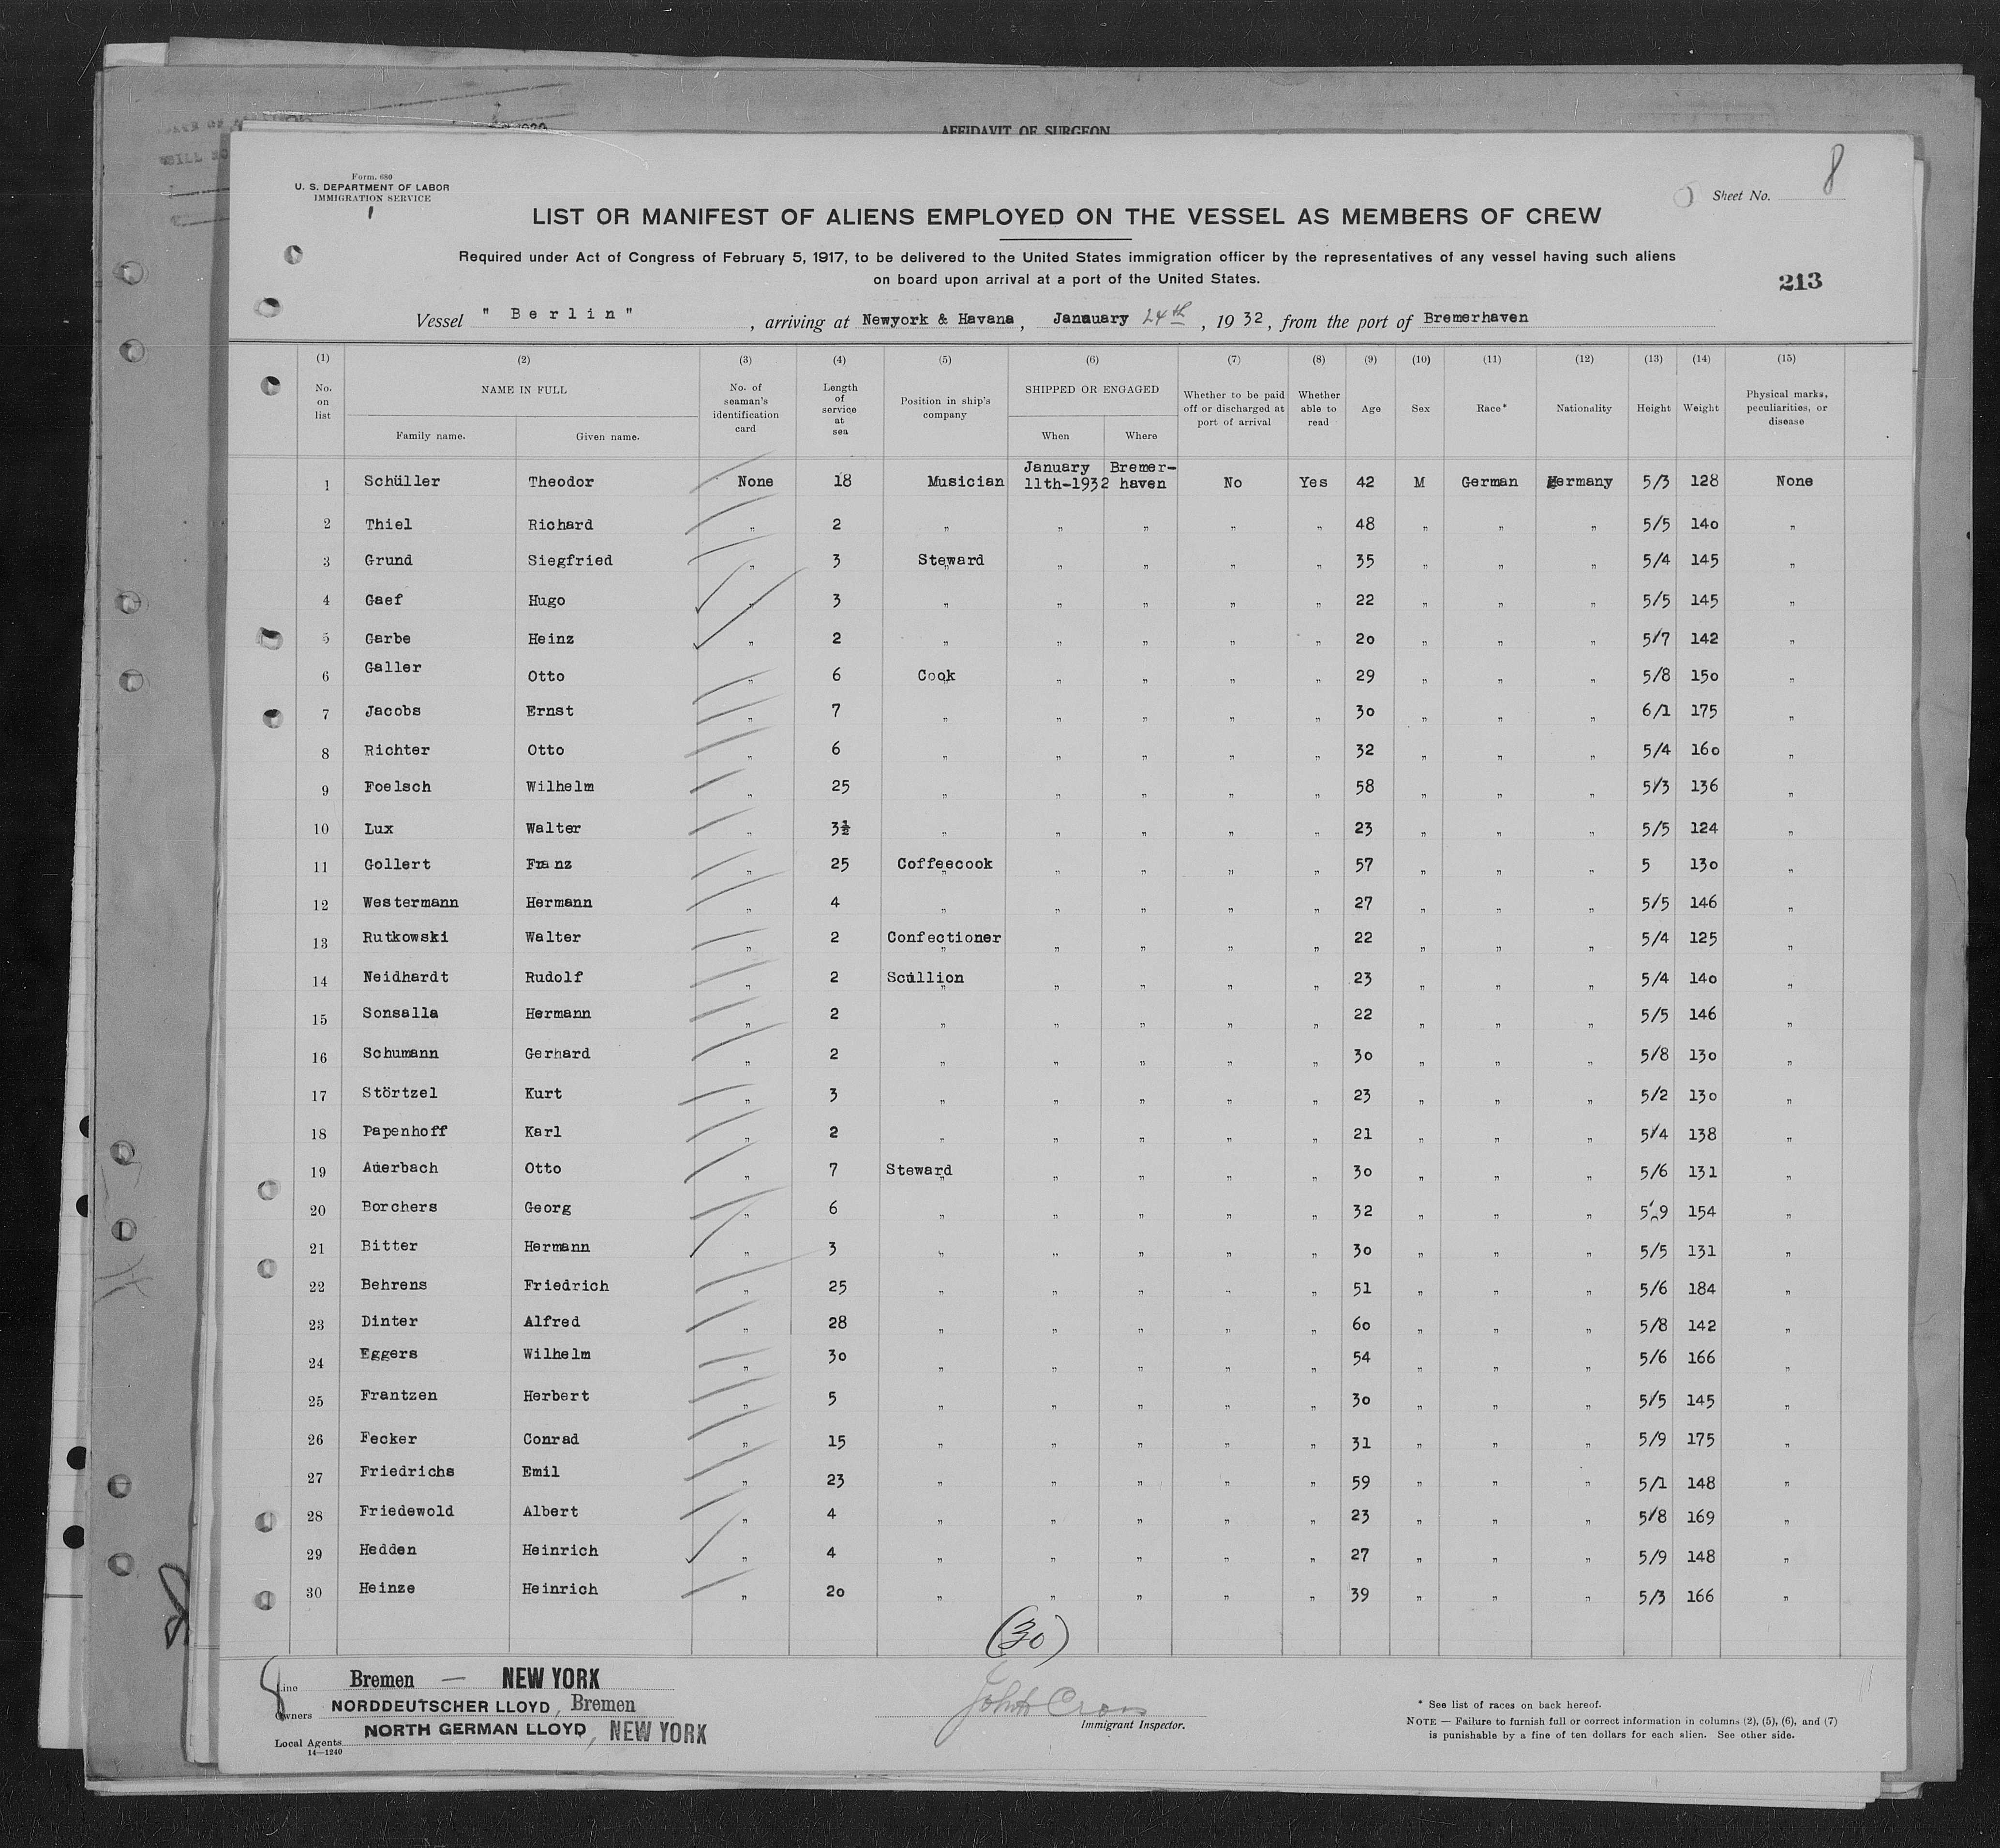 AFFIDAVIT OF SURGEON
Form. 680
U. S. DEPARTMENT OF LABOR
IMMIGRATION SERVICE
Sheet No. 8
LIST OR MANIFEST OF ALIENS EMPLOYED ON THE VESSEL AS MEMBERS OF CREW
Required under Act of Congress of February 5, 1917, to be delivered to the United States immigration officer by the representatives of any vessel having such aliens
on board upon arrival at a port of the United States.
213
Vessel " Berlin " , arriving at Newyork & Havana, January 24th, 1932, from the port of Bremerhaven
(1) (2) (3) (4) (5) (6) (7) (8) (9) (10) (11) (12) (13) (14) (15)
No. on list NAME IN FULL No. of seaman's identification card Length of service at sea Position in ship's company SHIPPED OR ENGAGED Whether to be paid off or discharged at port of arrival Whether able to read Age Sex Race* Nationality Height Weight Physical marks, peculiarities, or disease
Family name. Given name. When Where
1 Schüller Theodor None 18 Musician January 11th-1932 Bremer-haven No Yes 42 M German Germany 5/3 128 None
2 Thiel Richard " 2 " " " " " 48 " " " 5/5 140 "
3 Grund Siegfried " 3 Steward " " " " 35 " " " 5/4 145 "
4 Gaef Hugo " 3 " " " " " 22 " " " 5/5 145 "
5 Garbe Heinz " 2 " " " " " 20 " " " 5/7 142 "
6 Galler Otto " 6 Cook " " " " 29 " " " 5/8 150 "
7 Jacobs Ernst " 7 " " " " " 30 " " " 6/1 175 "
8 Richter Otto " 6 " " " " " 32 " " " 5/4 160 "
9 Foelsch Wilhelm " 25 " " " " " 58 " " " 5/3 136 "
10 Lux Walter " 3½ " " " " " 23 " " " 5/5 124 "
11 Gollert Franz " 25 Coffeecook " " " " 57 " " " 5 130 "
12 Westermann Hermann " 4 " " " " " 27 " " " 5/5 146 "
13 Rutkowski Walter " 2 Confectioner " " " " 22 " " " 5/4 125 "
14 Neidhardt Rudolf " 2 Scullion " " " " 23 " " " 5/4 140 "
15 Sonsalla Hermann " 2 " " " " " 22 " " " 5/5 146 "
16 Schumann Gerhard " 2 " " " " " 30 " " " 5/8 130 "
17 Störtzel Kurt " 3 " " " " " 23 " " " 5/2 130 "
18 Papenhoff Karl " 2 " " " " " 21 " " " 5/4 138 "
19 Auerbach Otto " 7 Steward " " " " 30 " " " 5/6 131 "
20 Borchers Georg " 6 " " " " " 32 " " " 5/9 154 "
21 Bitter Hermann " 3 " " " " " 30 " " " 5/5 131 "
22 Behrens Friedrich " 25 " " " " " 51 " " " 5/6 184 "
23 Dinter Alfred " 28 " " " " " 60 " " " 5/8 142 "
24 Eggers Wilhelm " 30 " " " " " 54 " " " 5/6 166 "
25 Frantzen Herbert " 5 " " " " " 30 " " " 5/5 145 "
26 Fecker Conrad " 15 " " " " " 31 " " " 5/9 175 "
27 Friedrichs Emil " 23 " " " " " 59 " " " 5/1 148 "
28 Friedewold Albert " 4 " " " " " 23 " " " 5/8 169 "
29 Hedden Heinrich " 4 " " " " " 27 " " " 5/9 148 "
30 Heinze Heinrich " 20 " " " " " 39 " " " 5/3 166 "
(30)
Line Bremen — NEW YORK
Owners NORDDEUTSCHER LLOYD, Bremen
Local Agents NORTH GERMAN LLOYD, NEW YORK
14—1240
John Cron
Immigrant Inspector.
* See list of races on back hereof.
NOTE — Failure to furnish full or correct information in columns (2), (5), (6), and (7)
is punishable by a fine of ten dollars for each alien. See other side.